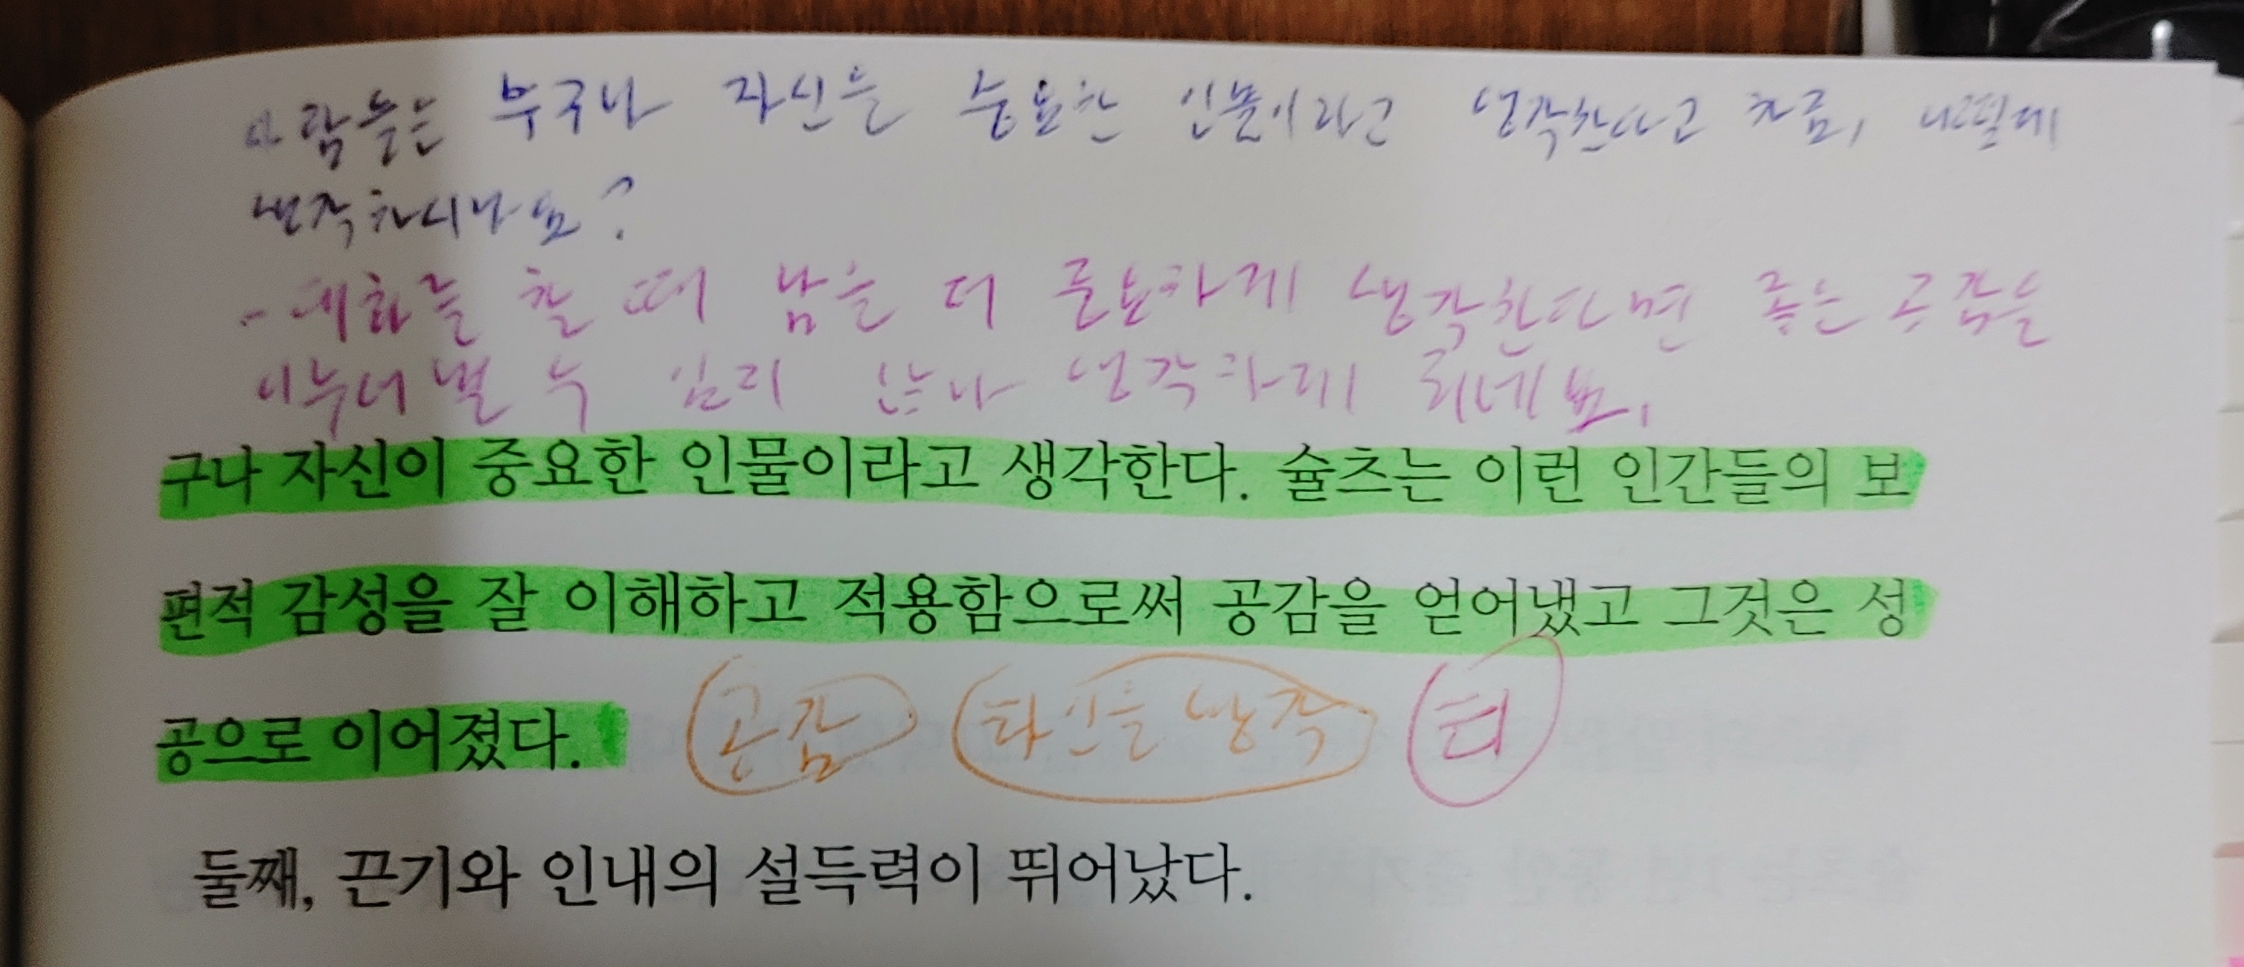 사람들은 누구나 자신을 중요한 인물이라고 생각한다고 하죠, 어떻게
생각하시나요?
- 대화를 할 때 남을 더 중요하게 생각한다면 좋은 공감을
이루어낼 수 있지 않나 생각하게 되네요.
구나 자신이 중요한 인물이라고 생각한다. 슐츠는 이런 인간들의 보
편적 감성을 잘 이해하고 적용함으로써 공감을 얻어냈고 그것은 성
공으로 이어졌다.
공감 생각
둘째, 끈기와 인내의 설득력이 뛰어났다.